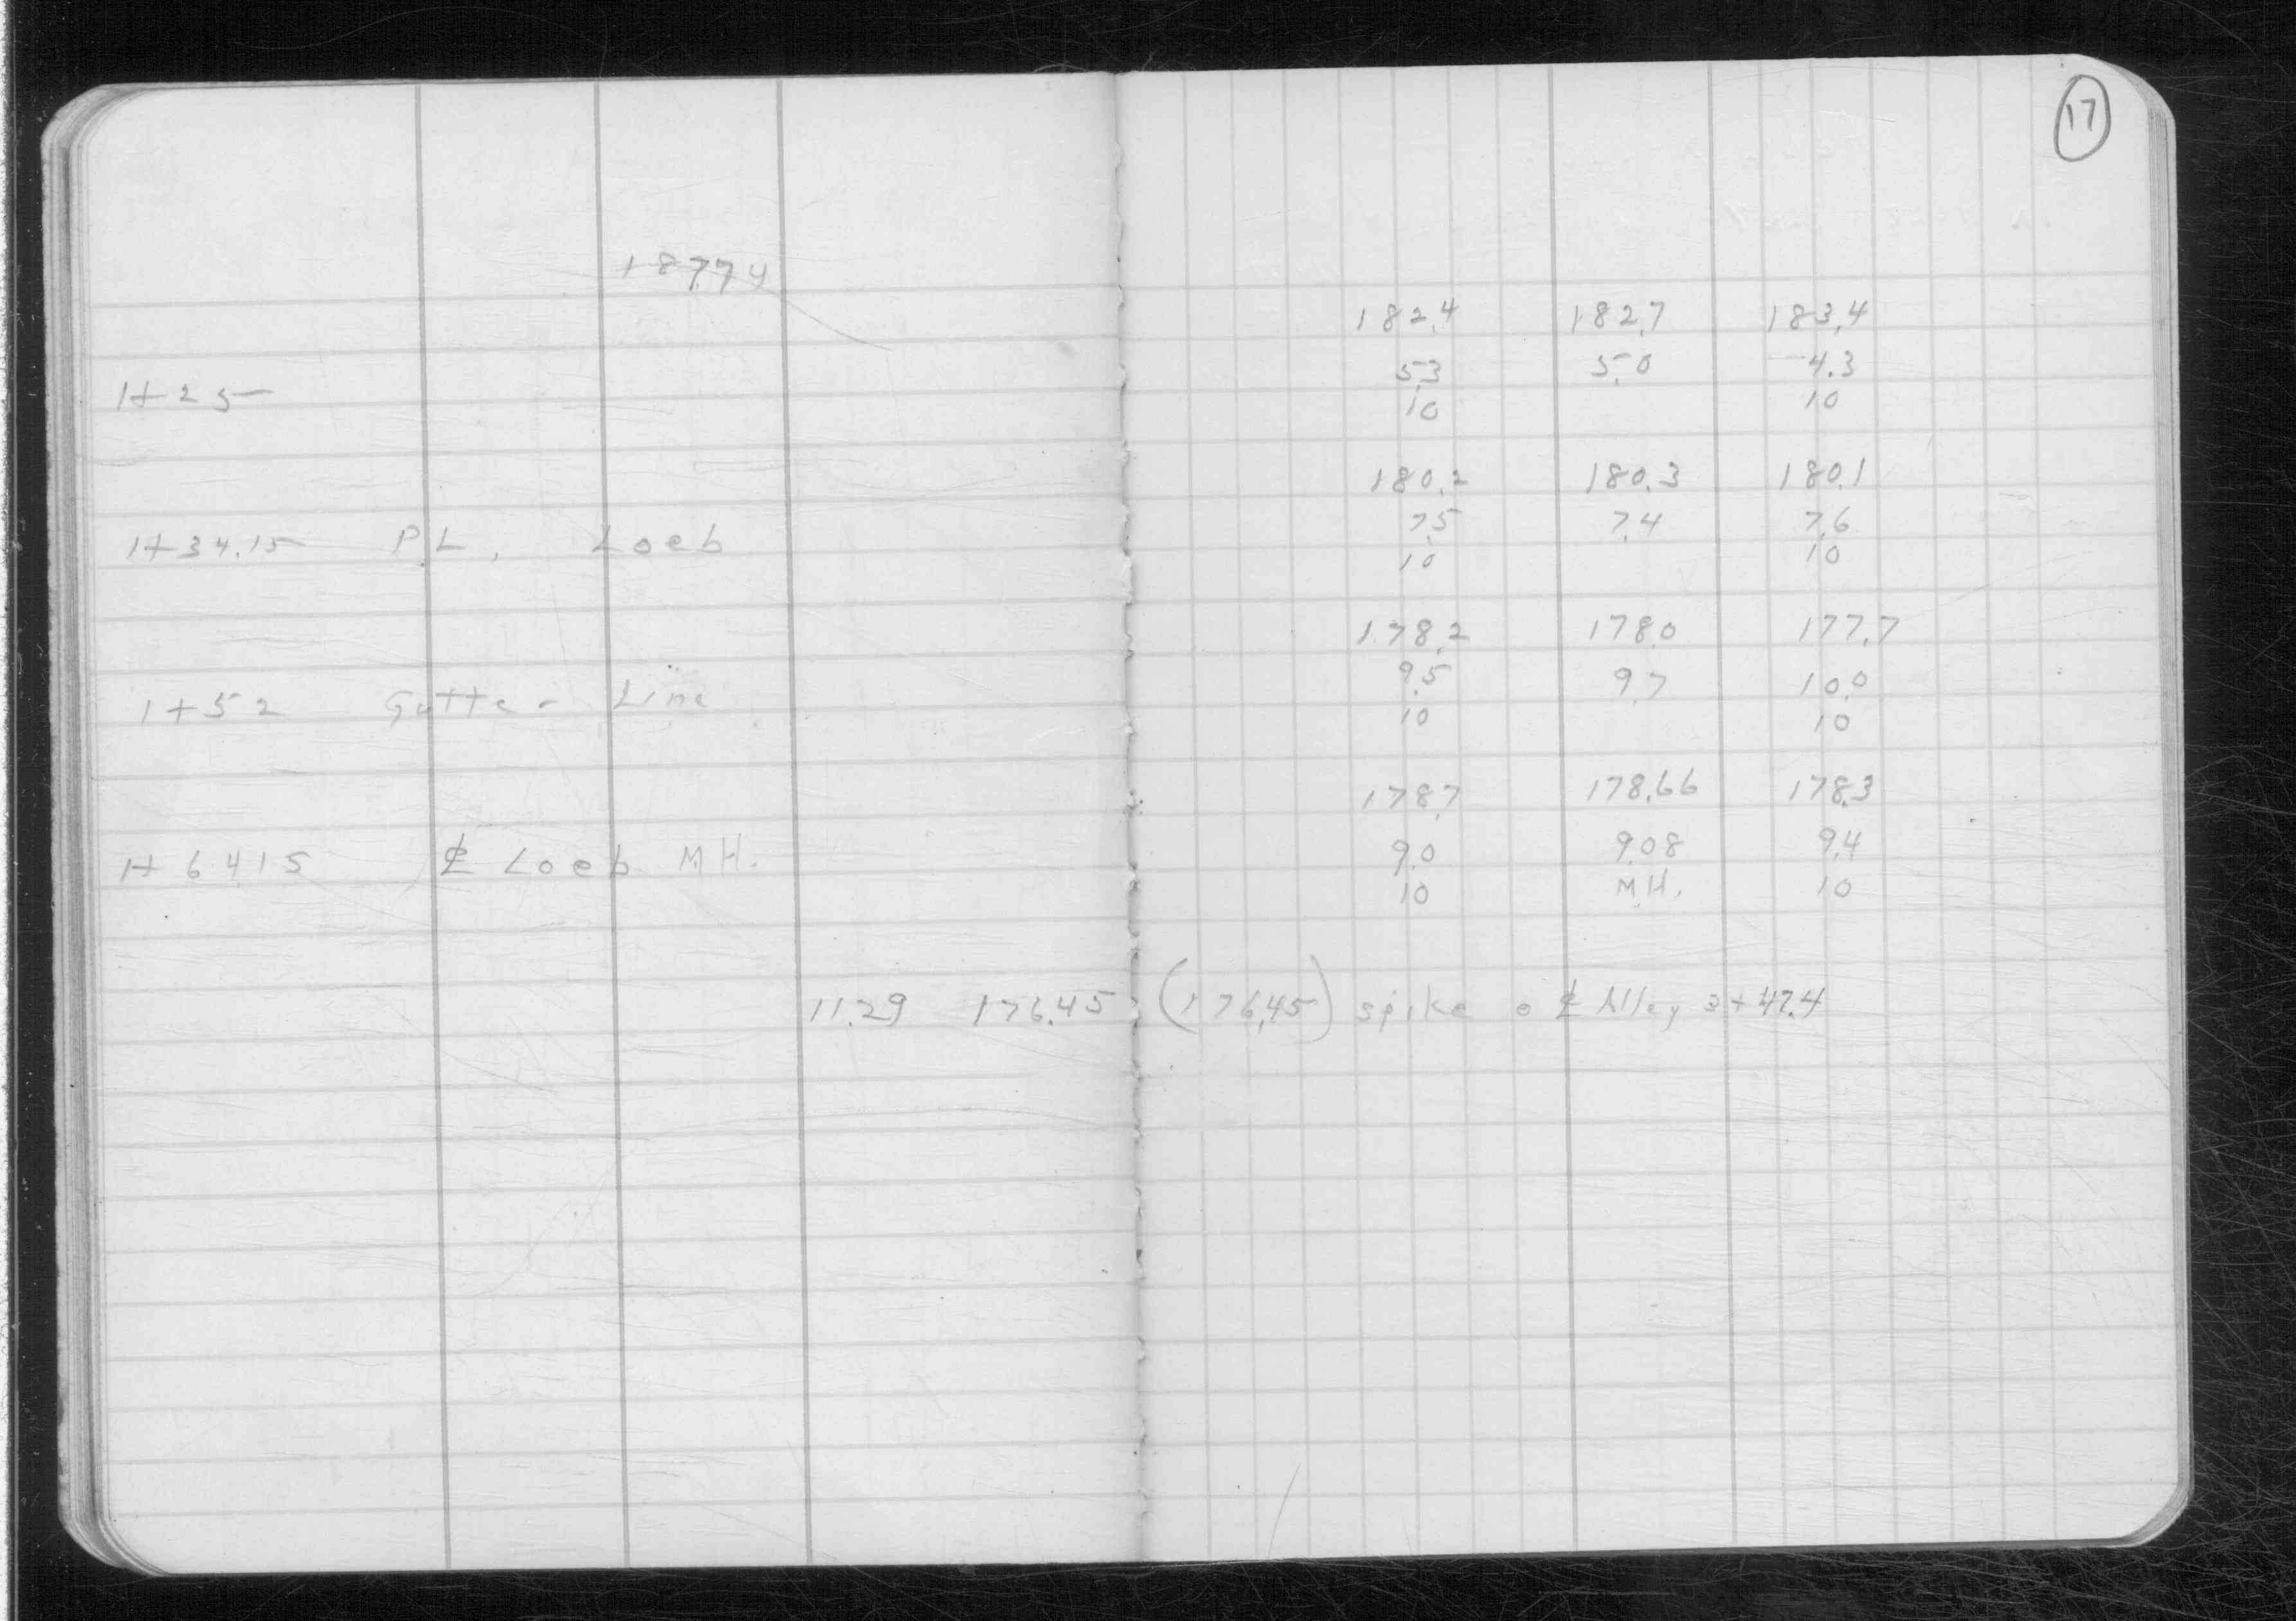 17
187.74
182.4 182.7 183.4
1+25 5.3 5.0 4.3
10 10
180.2 180.3 180.1
1+34.15 P.L. Loeb 7.5 7.4 7.6
10 10
178.2 178.0 177.7
1+52 Gutter Line 9.5 9.7 10.0
10 10
178.7 178.66 178.3
1+64.15 ℄ Loeb M.H. 9.0 9.08 9.4
10 M.H. 10
11.29 176.45 (176.45) spike o ℄ Alley 3+47.4